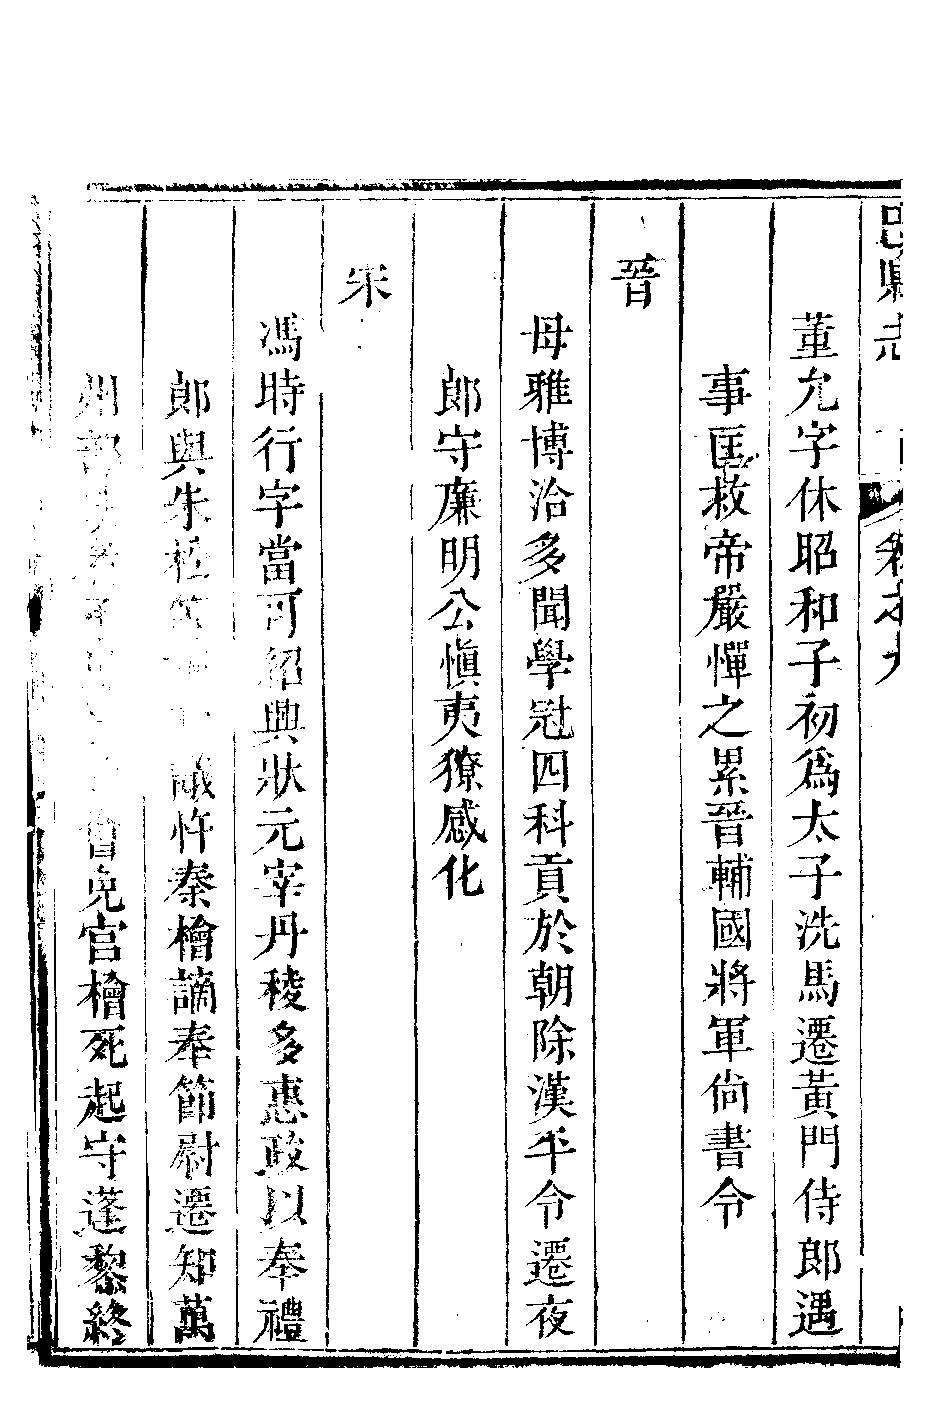 縣志 卷之九
董允字休昭和子初爲太子洗馬遷黃門侍郎遇
事匡救帝嚴憚之累晉輔國將軍尚書令
晉
母雅博洽多聞學冠四科貢於朝除漢平令遷夜
郞守廉明公愼夷獠感化
宋
馮時行字當可紹興狀元宰丹稜多惠政以奉禮
郞與朱松等議忤秦檜謫奉節尉遷知萬
州部會免官檜死起守蓬黎終